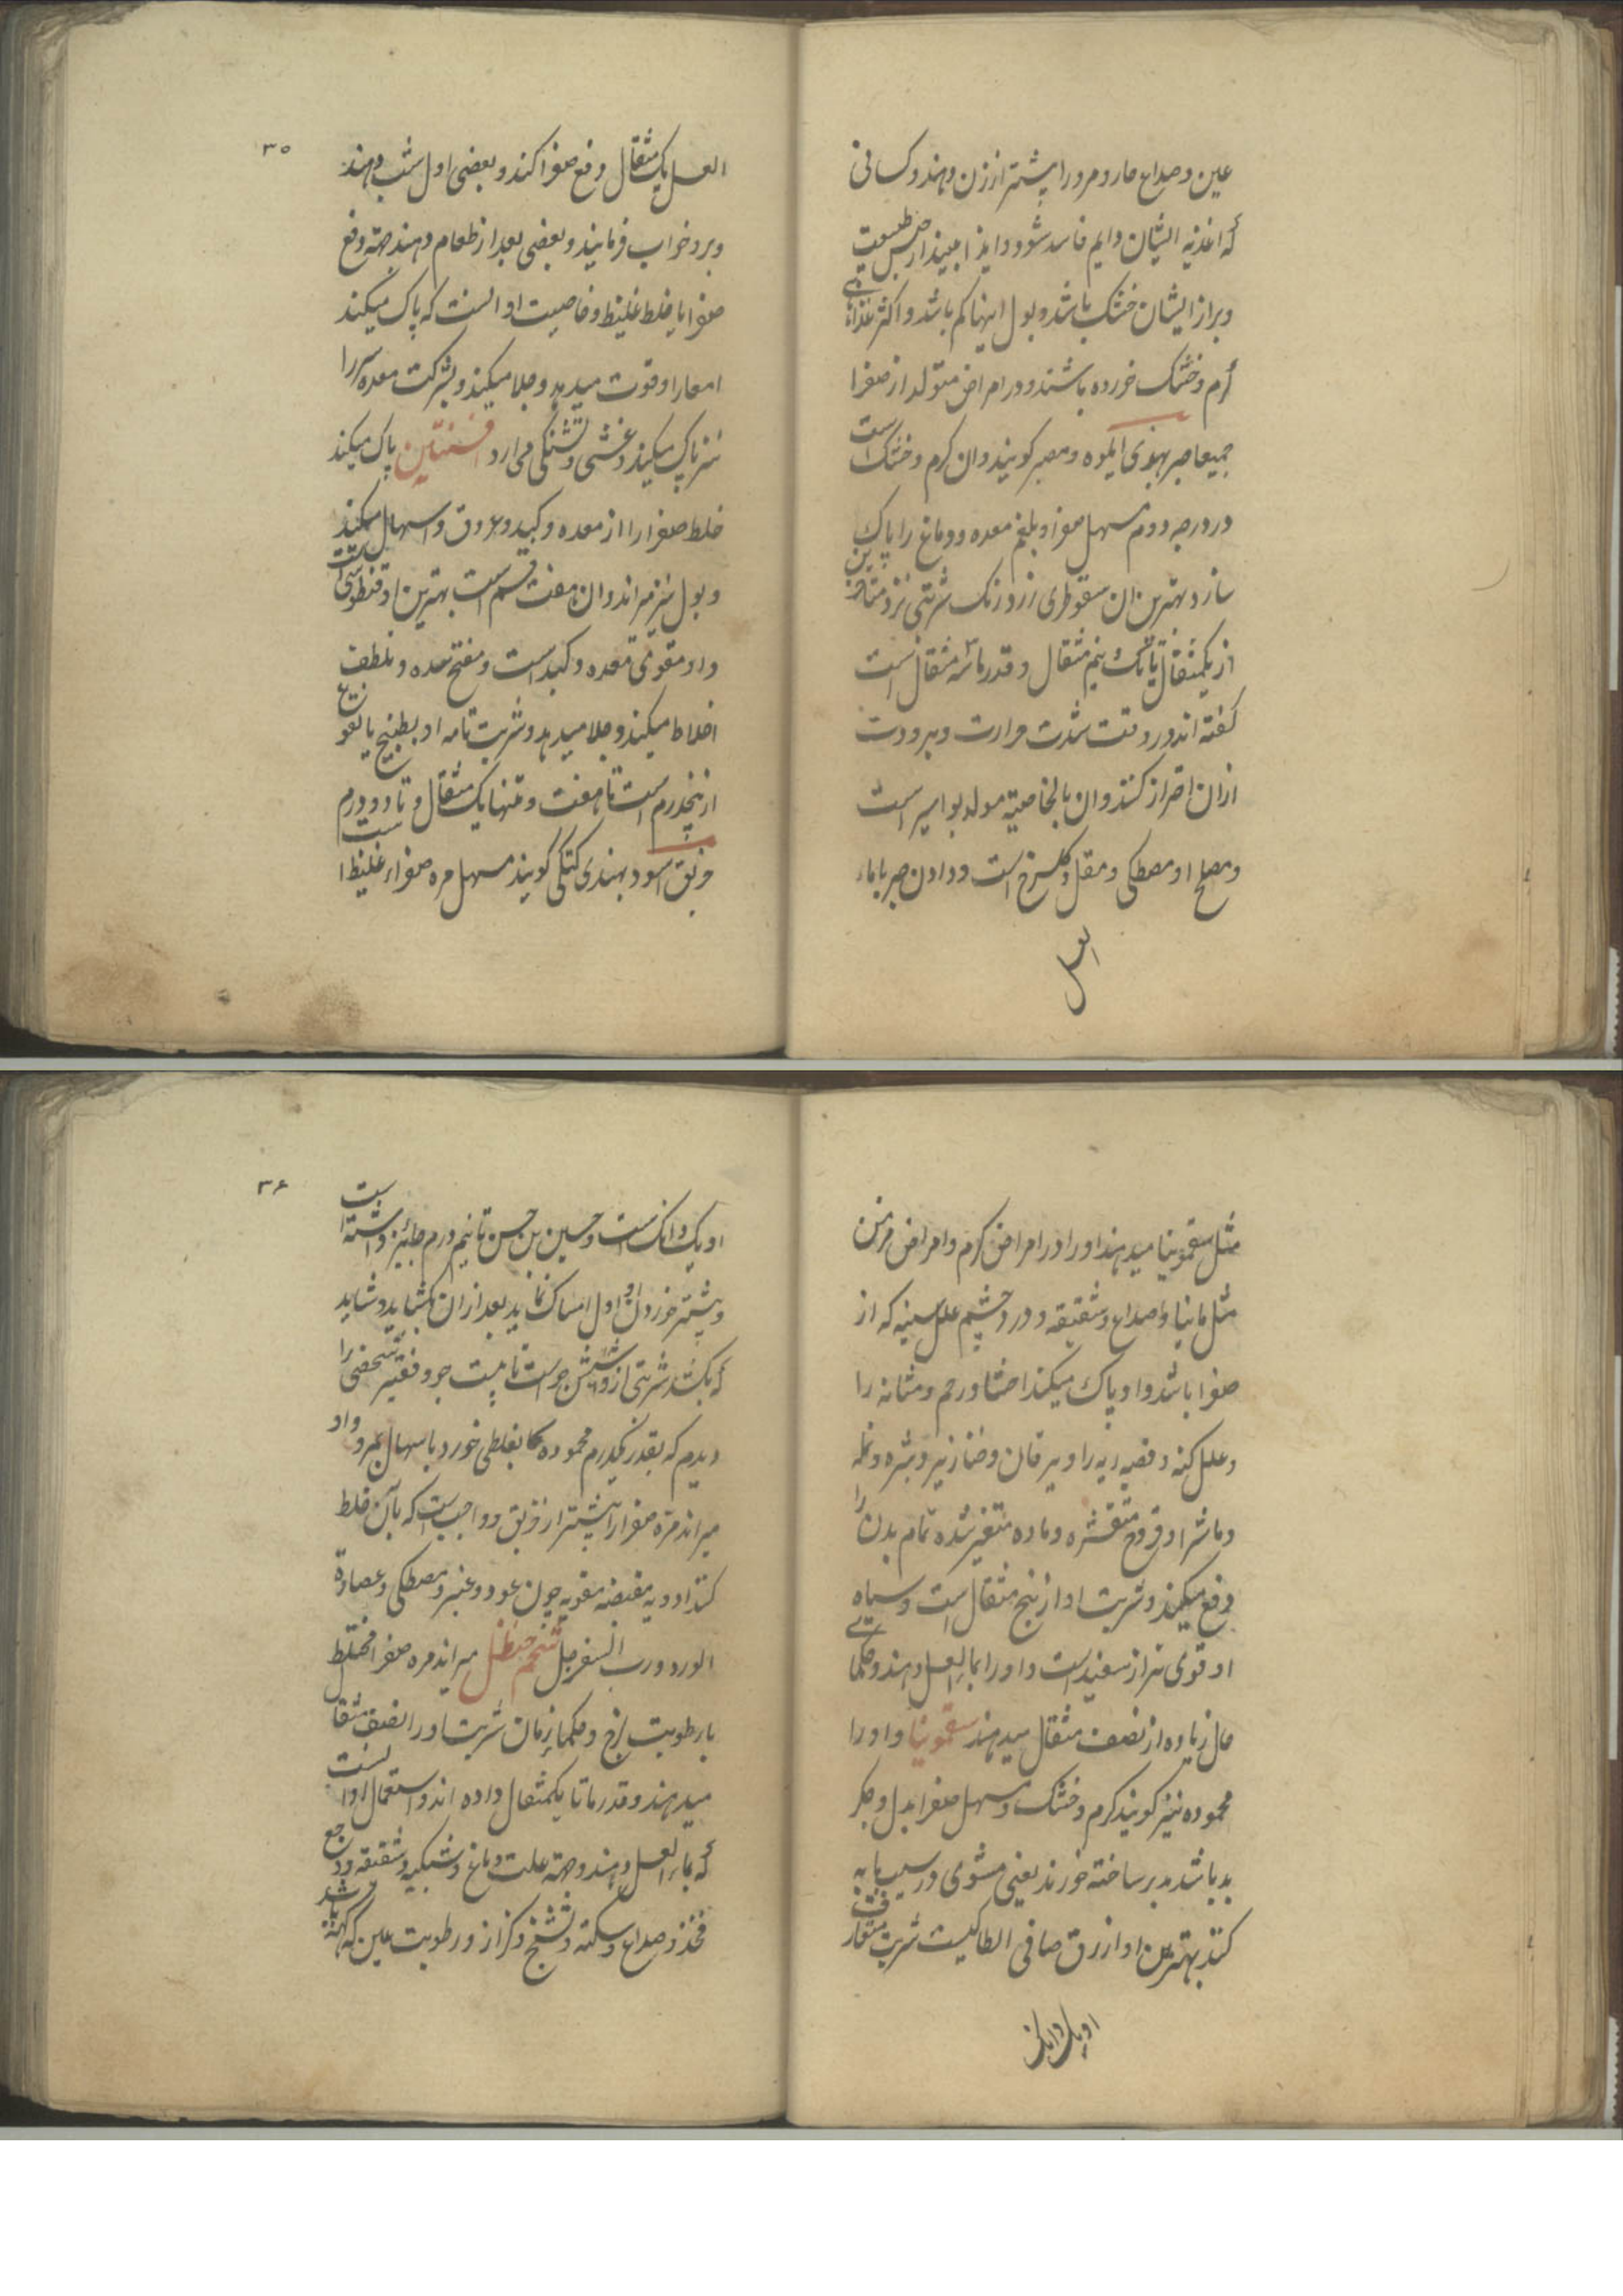 عین و صداع حار و مرور را پیشتر از زن دهند و کسانی
که اغذیه ایشان دایم فاسد شود و ایذا مییند از حبس طبیعت
و براز ایشان خشک باشد و بول اینها کم باشد و اکثر غذاهای
گرم و خشک خورده باشند و در امراض متولد از صفرا
جمیعا صبر بهندی ایلوه و مصبر گویند و ان گرم و خشک است
در درجه دوم مسهل صفرا و بلغم معده و دماغ را پاک
سازد بهترین ان سقوطری زرد رنگ شربتی نزد متاخرین
از یکمثقال تا یک نیم مثقال و قدر ما سه مثقال است
گفته اند در وقت شدت حرارت و برودت
ازان احتراز کنند و ان بالخاصیته مولد بواسیر است
و مصلح او مصطکی و مقل و گلسرخ است و دادن صبر با ماء
العسل
۳۵
العسل یک مثقال دفع صفرا کند و بعضی اول شب دهند
و برو خواب فرمایند و بعضی بعد از طعام دهند جهته دفع
صفرا با خلط غلیظ و خاصیت او انست که پاک میکند
امعا را و قوت میدهد و جلا میکند و بشرکت معده سر را
نیز پاک میکند و غشی و تشنگی می ارد افسنتین پاک میکند
خلط صفرا را از معده و کبد و عروق و اسهال میکند
و بول نیز میراند و ان هفت قسم است بهترین او قنطوسی است
و او مقوی معده و کبد است و مفتح سده و ملطف
اخلاط میکند و جلا میدهد و شربت تامه او بطبیخ یا نقوع
از پنجدرم است تا هفت و تنها یک مثقال و تا دو درم است
خربق اسود بهندی کتکی گویند مسهل مره صفراء غلیظ
مثل سقمونیا میدهند او را در امراض گرم و امراض مزمن
مثل مانیا و صداع و شقیقه و درد چشم علل سینه که از
صفرا باشد و او پاک میکند احشا و رحم و مثانه را
و علل کهنه و قصبه ریه را و یرقان و خنازیر و بثره و نمله
و ماشرا و قروح متقشره و ماده متغیر شده تمام بدن را
دفع میکند و شربت او از پنج مثقال است و سیاه
او قوی تر از سفید است و او را بماء العسل دهند و حکمای
حال زیاده از نصف مثقال میدهند سقمونیا و او را
محموده نیز گویند گرم و خشک و مسهل صفرا بدل و جگر
بد باشد مدبر ساخته خورند یعنی مشوی در سیب یا به
کنند بهترین او ازرق صافی انطاکیست شربت متعارف
او یک دانک
۳۶
او یک دانک است و حسین بن حسن تا نیم درم جایز داشته است
و پیشتر خوردن او اول امساک نماید بعد ازان بکشاید و شاید
که بکشد شربتی ازو شش جو است تا بیست جو و فقیر شخصی را
دیدم که بقدر یکدرم محموده بغلطی خورد باسهال بمرد و او
میراند مره صفرا را پیشتر از خربق و واجب است که بآن خلط
کنند ادویه مقبضه مقویه چون عود و عنبر و مصطکی و عصاره
الورد و رب السفرجل شحم حنظل میراند مره صفرا مختلط
با رطوبت لزج و حکماء زمان شربت او را نصف مثقال
میدهند و قدر ما تا یکمثقال داده اند و استعمال او انست
که بماء العسل دهند و جهته علت دماغ و شبکیه و شقیقه و وجع
فخذ و صداع و سکته و تشنج و کزاز و رطوبت عین که کهنه باشد